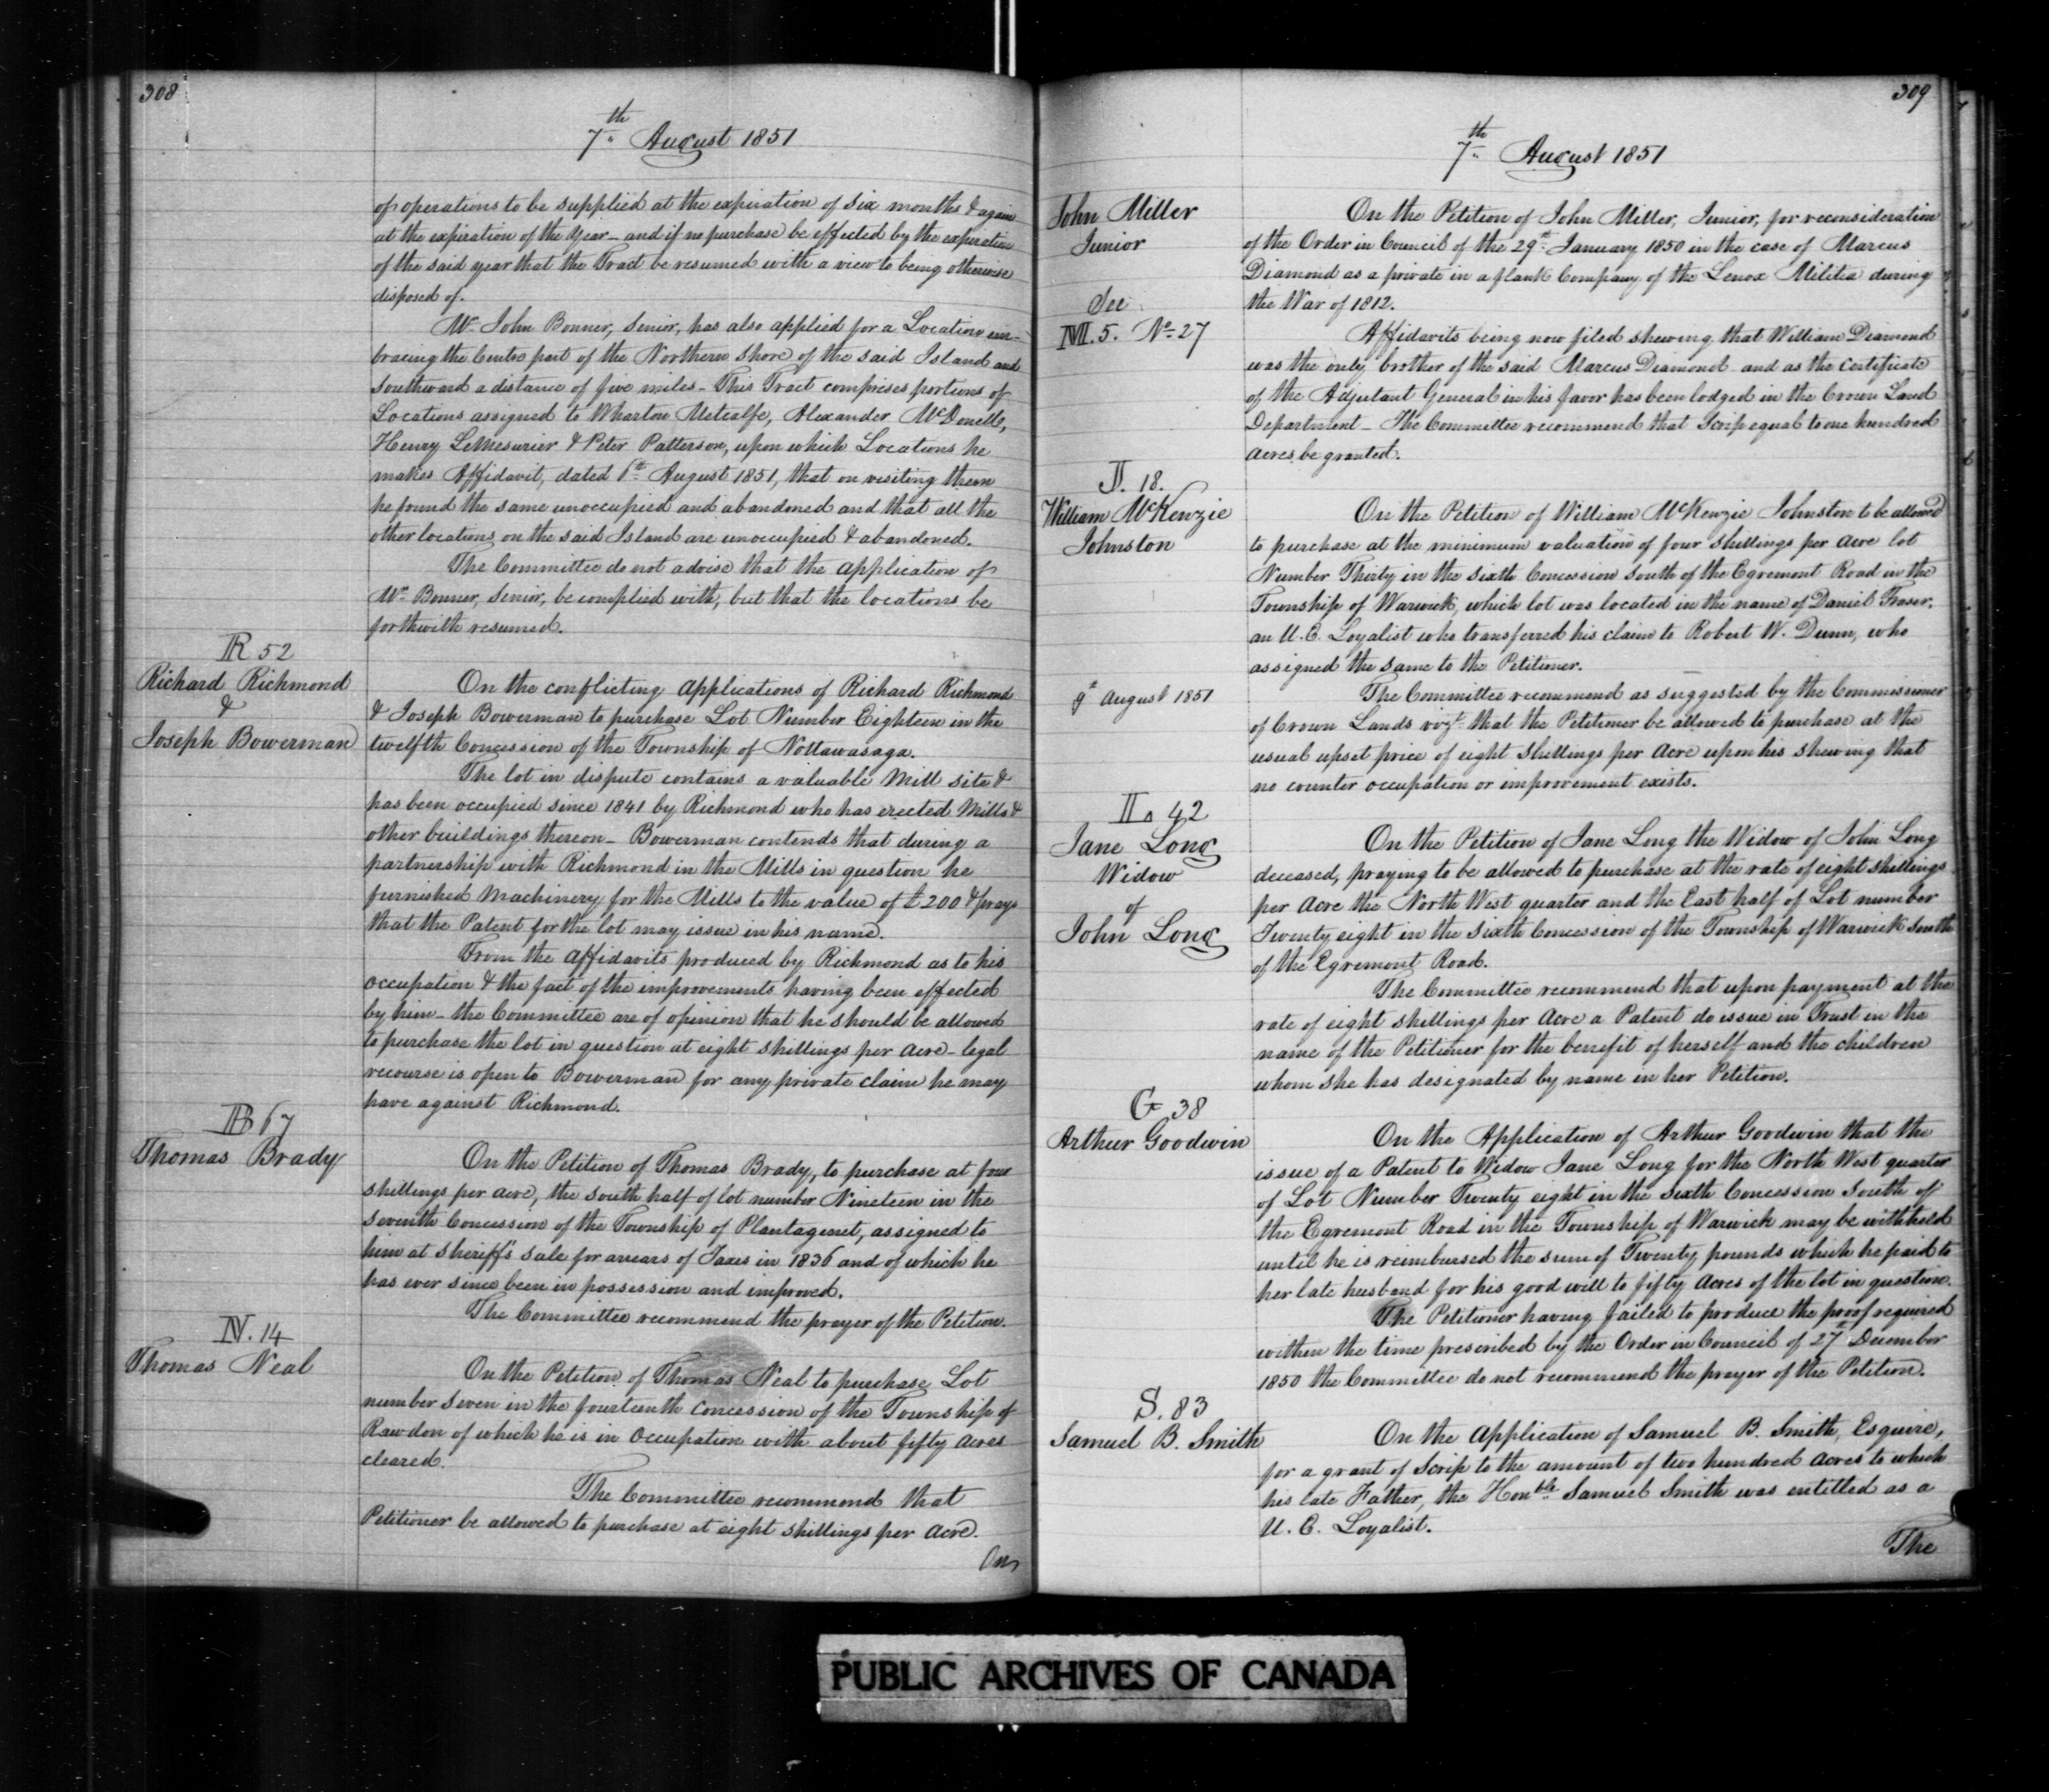 308
7th August 1851
of operations to be supplied at the expiration of six months & again
at the expiration of the year - and if no purchase be effected by the expiration
of the said year that the Tract be resumed with a view to being otherwise
disposed of.
Mr. John Bonner, Senior, has also applied for a Location em-
bracing the Centre part of the Northern Shore of the said Island and
Southward a distance of five miles - This Tract comprises portions of
Locations assigned to Wharton Metcalfe, Alexander McDonell,
Henry LeMesurier & Peter Patterson, upon which Locations he
makes Affidavit, dated 6th August 1851, that on visiting them
he found the same unoccupied and abandoned and that all the
other locations on the said Island are unoccupied & abandoned.
The Committee do not advise that the application of
Mr. Bonner, Senior, be complied with, but that the locations be
forthwith resumed.
R 52
Richard Richmond
&
Joseph Bowerman
On the conflicting applications of Richard Richmond
& Joseph Bowerman to purchase Lot Number Eighteen in the
twelfth Concession of the Township of Nottawasaga.
The lot in dispute contains a valuable Mill site &
has been occupied since 1841 by Richmond who has erected Mills &
other buildings thereon - Bowerman contends that during a
partnership with Richmond in the Mills in question he
furnished Machinery for the Mills to the value of £200 & prays
that the Patent for the lot may issue in his name.
From the affidavits produced by Richmond as to his
occupation & the fact of the improvements having been effected
by him - the Committee are of opinion that he should be allowed
to purchase the lot in question at eight shillings per acre - legal
recourse is open to Bowerman for any private claim he may
have against Richmond.
B 67
Thomas Brady
On the Petition of Thomas Brady, to purchase at four
shillings per acre, the south half of lot number Nineteen in the
Seventh Concession of the Township of Plantagenet, assigned to
him at Sheriff's sale for arrears of Taxes in 1836 and of which he
has ever since been in possession and improved.
The Committee recommend the prayer of the Petition.
N. 14
Thomas Neal
On the Petition of Thomas Neal to purchase Lot
number seven in the fourteenth Concession of the Township of
Rawdon of which he is in occupation with about fifty acres
cleared.
The Committee recommend that
Petitioner be allowed to purchase at eight shillings per acre.
On
309
7th August 1851
John Miller
Junior
See
M. 5. No. 27
On the Petition of John Miller, Junior, for reconsideration
of the Order in Council of the 29th January 1850 in the case of Marcus
Diamond as a private in a flank Company of the Lenox Militia during
the War of 1812.
Affidavits being now filed shewing that William Diamond
was the only brother of the said Marcus Diamond and as the Certificate
of the Adjutant General in his favor has been lodged in the Crown Land
Department - The Committee recommend that Scrip equal to one hundred
acres be granted.
J. 18.
William McKenzie
Johnston
9th August 1851
On the Petition of William McKenzie Johnston to be allowed
to purchase at the minimum valuation of four shillings per acre lot
Number Thirty in the sixth Concession south of the Egremont Road in the
Township of Warwick, which lot was located in the name of Daniel Fraser,
an U.E. Loyalist who transferred his claim to Robert W. Dunn, who
assigned the same to the Petitioner.
The Committee recommend as suggested by the Commissioner
of Crown Lands vizt. that the Petitioner be allowed to purchase at the
usual upset price of eight shillings per acre upon his shewing that
no counter occupation or improvement exists.
L. 42
Jane Long
Widow
of
John Long
On the Petition of Jane Long the Widow of John Long
deceased, praying to be allowed to purchase at the rate of eight shillings
per acre the North West quarter and the East half of Lot number
Twenty eight in the sixth Concession of the Township of Warwick South
of the Egremont Road.
The Committee recommend that upon payment at the
rate of eight shillings per acre a Patent do issue in Trust in the
name of the Petitioner for the benefit of herself and the children
whom she has designated by name in her Petition.
G 38
Arthur Goodwin
On the Application of Arthur Goodwin that the
issue of a Patent to Widow Jane Long for the North West quarter
of Lot Number Twenty eight in the sixth Concession South of
the Egremont Road in the Township of Warwick may be withheld
until he is reimbursed the sum of Twenty pounds which he paid to
her late husband for his good will to fifty acres of the lot in question.
The Petitioner having failed to produce the proof required
within the time prescribed by the Order in Council of 27th December
1850 the Committee do not recommend the prayer of the Petition.
S. 83
Samuel B. Smith
On the Application of Samuel B. Smith, Esquire,
for a grant of Scrip to the amount of two hundred acres to which
his late Father, the Honble Samuel Smith was entitled as a
U. E. Loyalist.
The
PUBLIC ARCHIVES OF CANADA